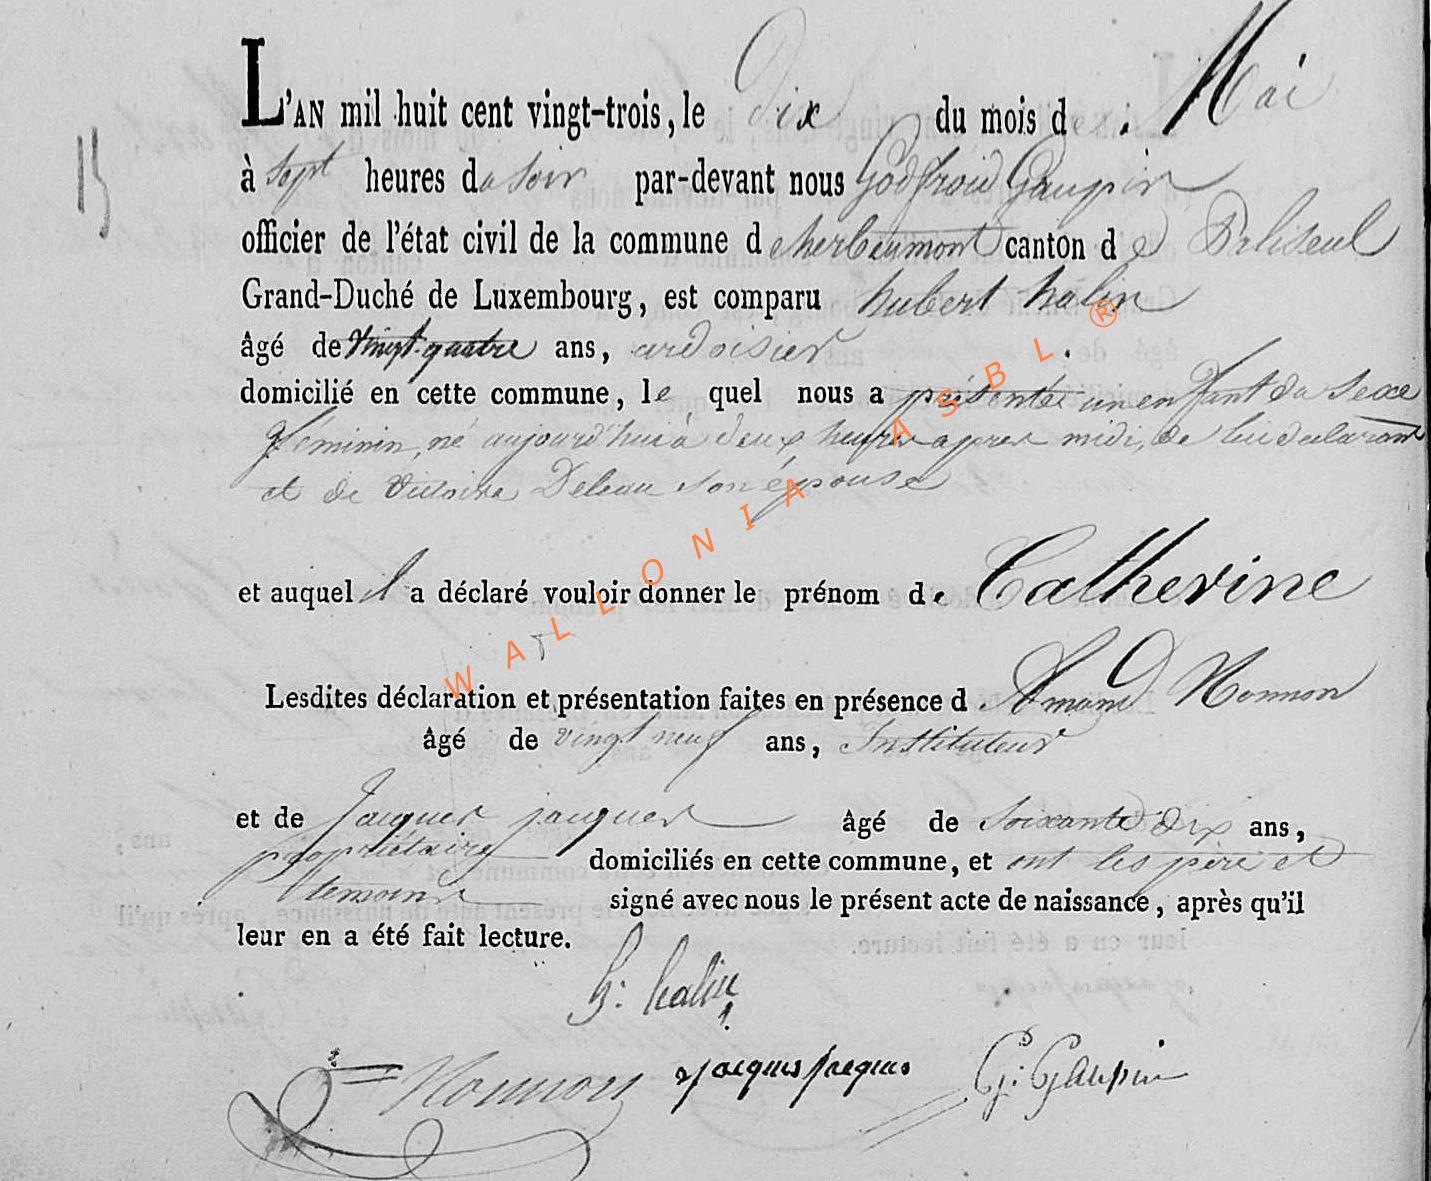 L'AN mil huit cent vingt-trois, le Dix du mois de Mai
15
à sept heures du soir par-devant nous Godfroid Gaupin
officier de l'état civil de la commune d'herbeumont canton de Paliseul
Grand-Duché de Luxembourg, est comparu hubert halin
âgé de vingt-quatre ans, ardoisier
domicilié en cette commune, le quel nous a présenté un enfant du Sexe
féminin, né aujourd'hui à deux heures apres midi, de lui déclarant
et de Victoire Deleau son épouse
et auquel il a déclaré vouloir donner le prénom de Catherine
Lesdites déclaration et présentation faites en présence d'Amand Nonnon
âgé de vingt neuf ans, Instituteur
et de Jacques jacques âgé de soixante dix ans,
propriétaire domiciliés en cette commune, et ont les père et
temoins signé avec nous le présent acte de naissance, après qu'il
leur en a été fait lecture.
h: halin
Nonnon Jacques Jacques G: Gaupin
WALLONIA ASBL ®